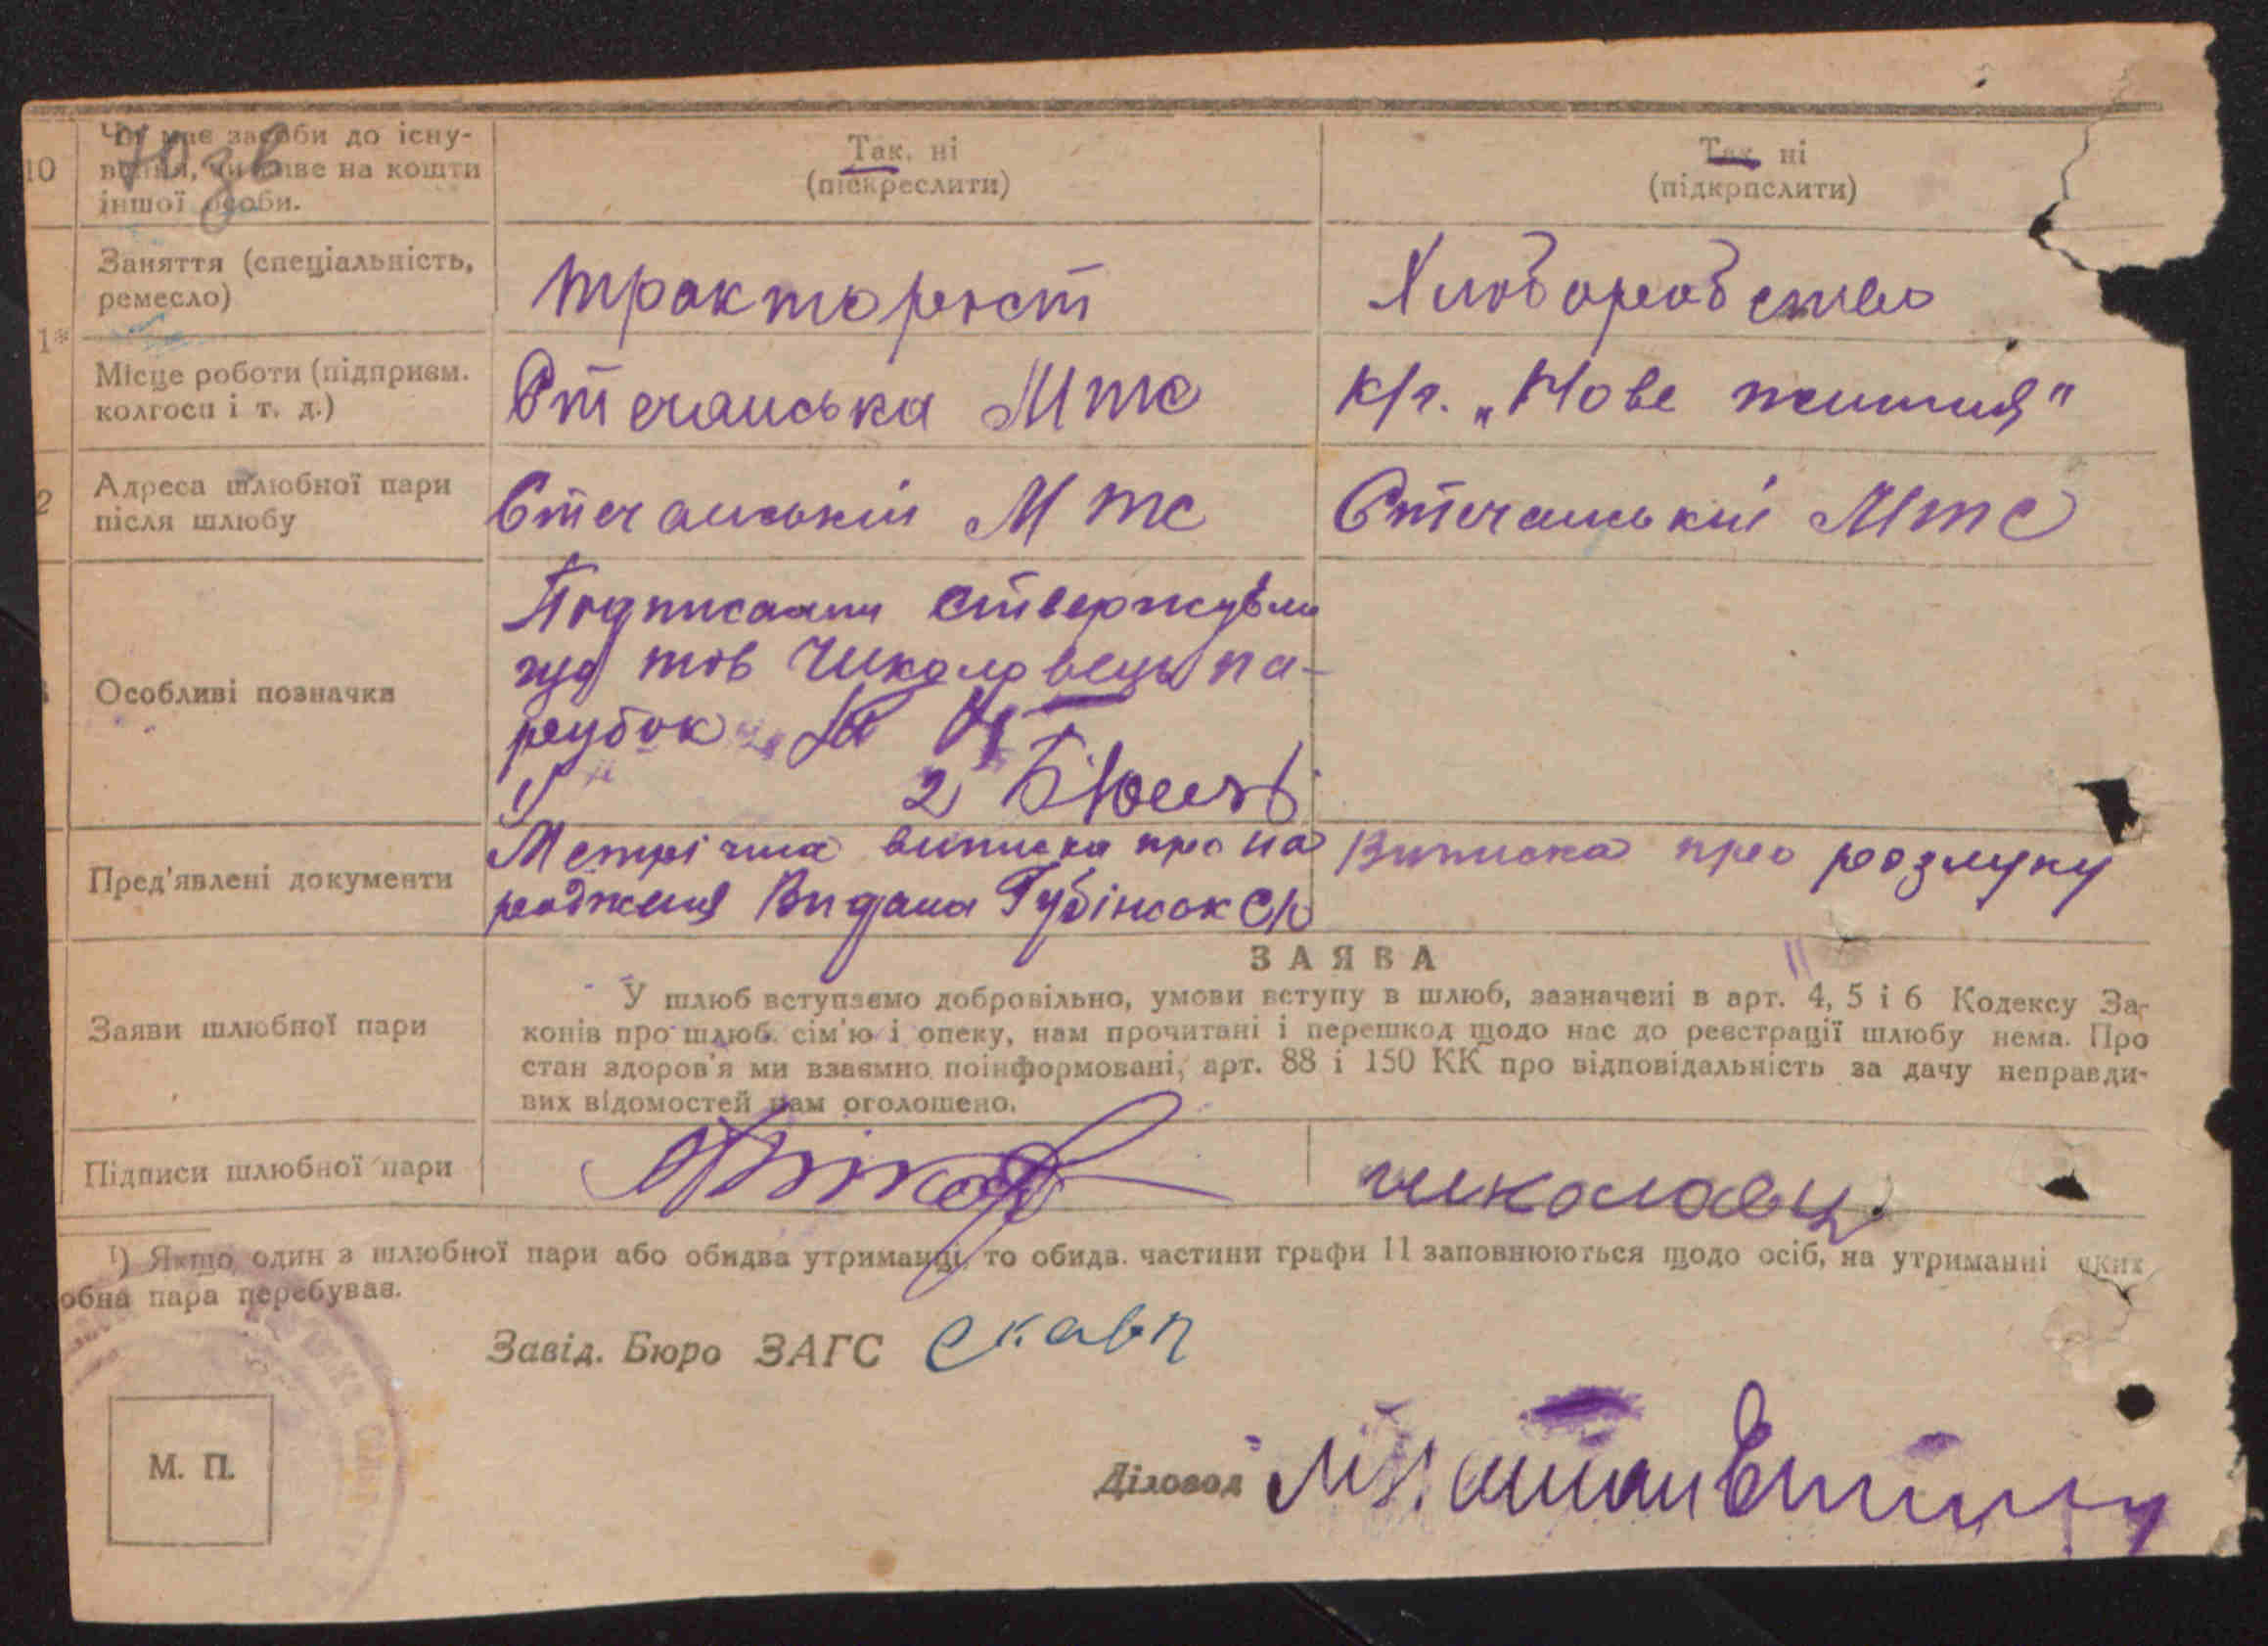 10
Чи має засоби до існу-
вання, чи живе на кошти
іншої особи.
Так, ні
(піскреслити)
Так ні
(підкрпслити)
Заняття (спеціальність,
ремесло)
тракторіст
Хліборобство
Місце роботи (підприєм.
колгосп і т. д.)
Мтс
К/г. „Нове життя"
2
Адреса шлюбної пари
після шлюбу
Мтс
Мтс
Особливі позначки
тов Чиколовець па-
рубок
2
Пред'явлені документи
Метрічна виписка про на
родження Видана Губінсок С/р
Виписка про розлуку
ЗАЯВА
Заяви шлюбної пари
У шлюб вступаємо добровільно, умови вступу в шлюб, зазначені в арт. 4, 5 і 6 Кодексу За-
конів про шлюб. сім'ю і опеку, нам прочитані і перешкод щодо нас до реєстрації шлюбу нема. Про
стан здоров'я ми взаємно поінформовані, арт. 88 і 150 КК про відповідальність за дачу неправди-
вих відомостей нам оголошено.
Підписи шлюбної пари
чиколовец
¹) Якщо один з шлюбної пари або обидва утриманці, то обидв. частини графи 11 заповнюються щодо осіб, на утриманні яких
обна пара перебуває.
Завід. Бюро ЗАГС
М. П.
Діловод